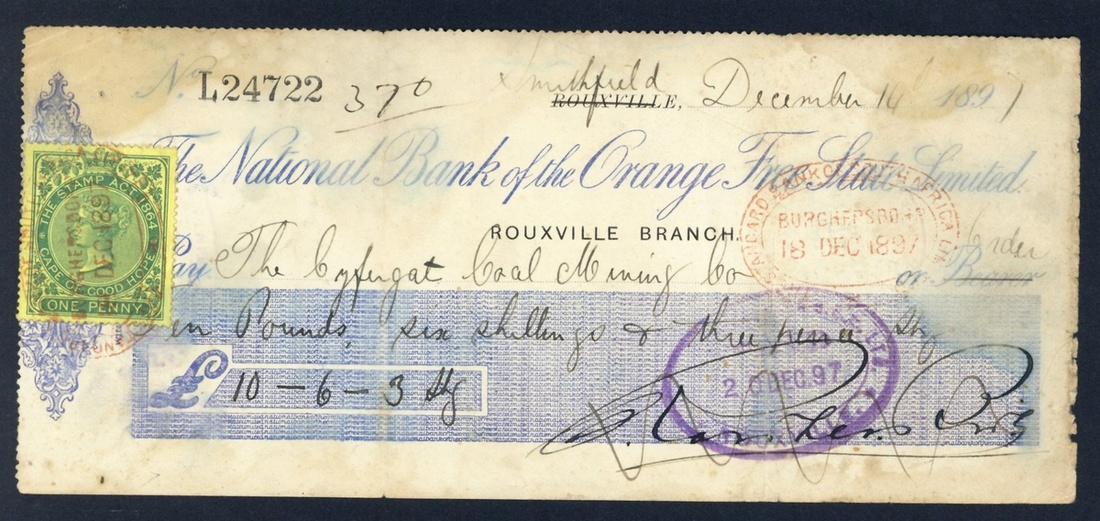 No. L24722 370 Smithfield ROUXVILLE, December 14 1897
The National Bank of the Orange Free State Limited.
ROUXVILLE BRANCH.
Pay The Cyfergat Coal Mining Co or Bearer Order
Ten Pounds, six shillings & three pence Stg
£ 10 - 6 - 3 Stg
THE STAMP ACT 1864
CAPE OF GOOD HOPE
ONE PENNY
STANDARD BANK OF SOUTH AFRICA
BURGHERSDORP
18 DEC 1897
20 DEC 97